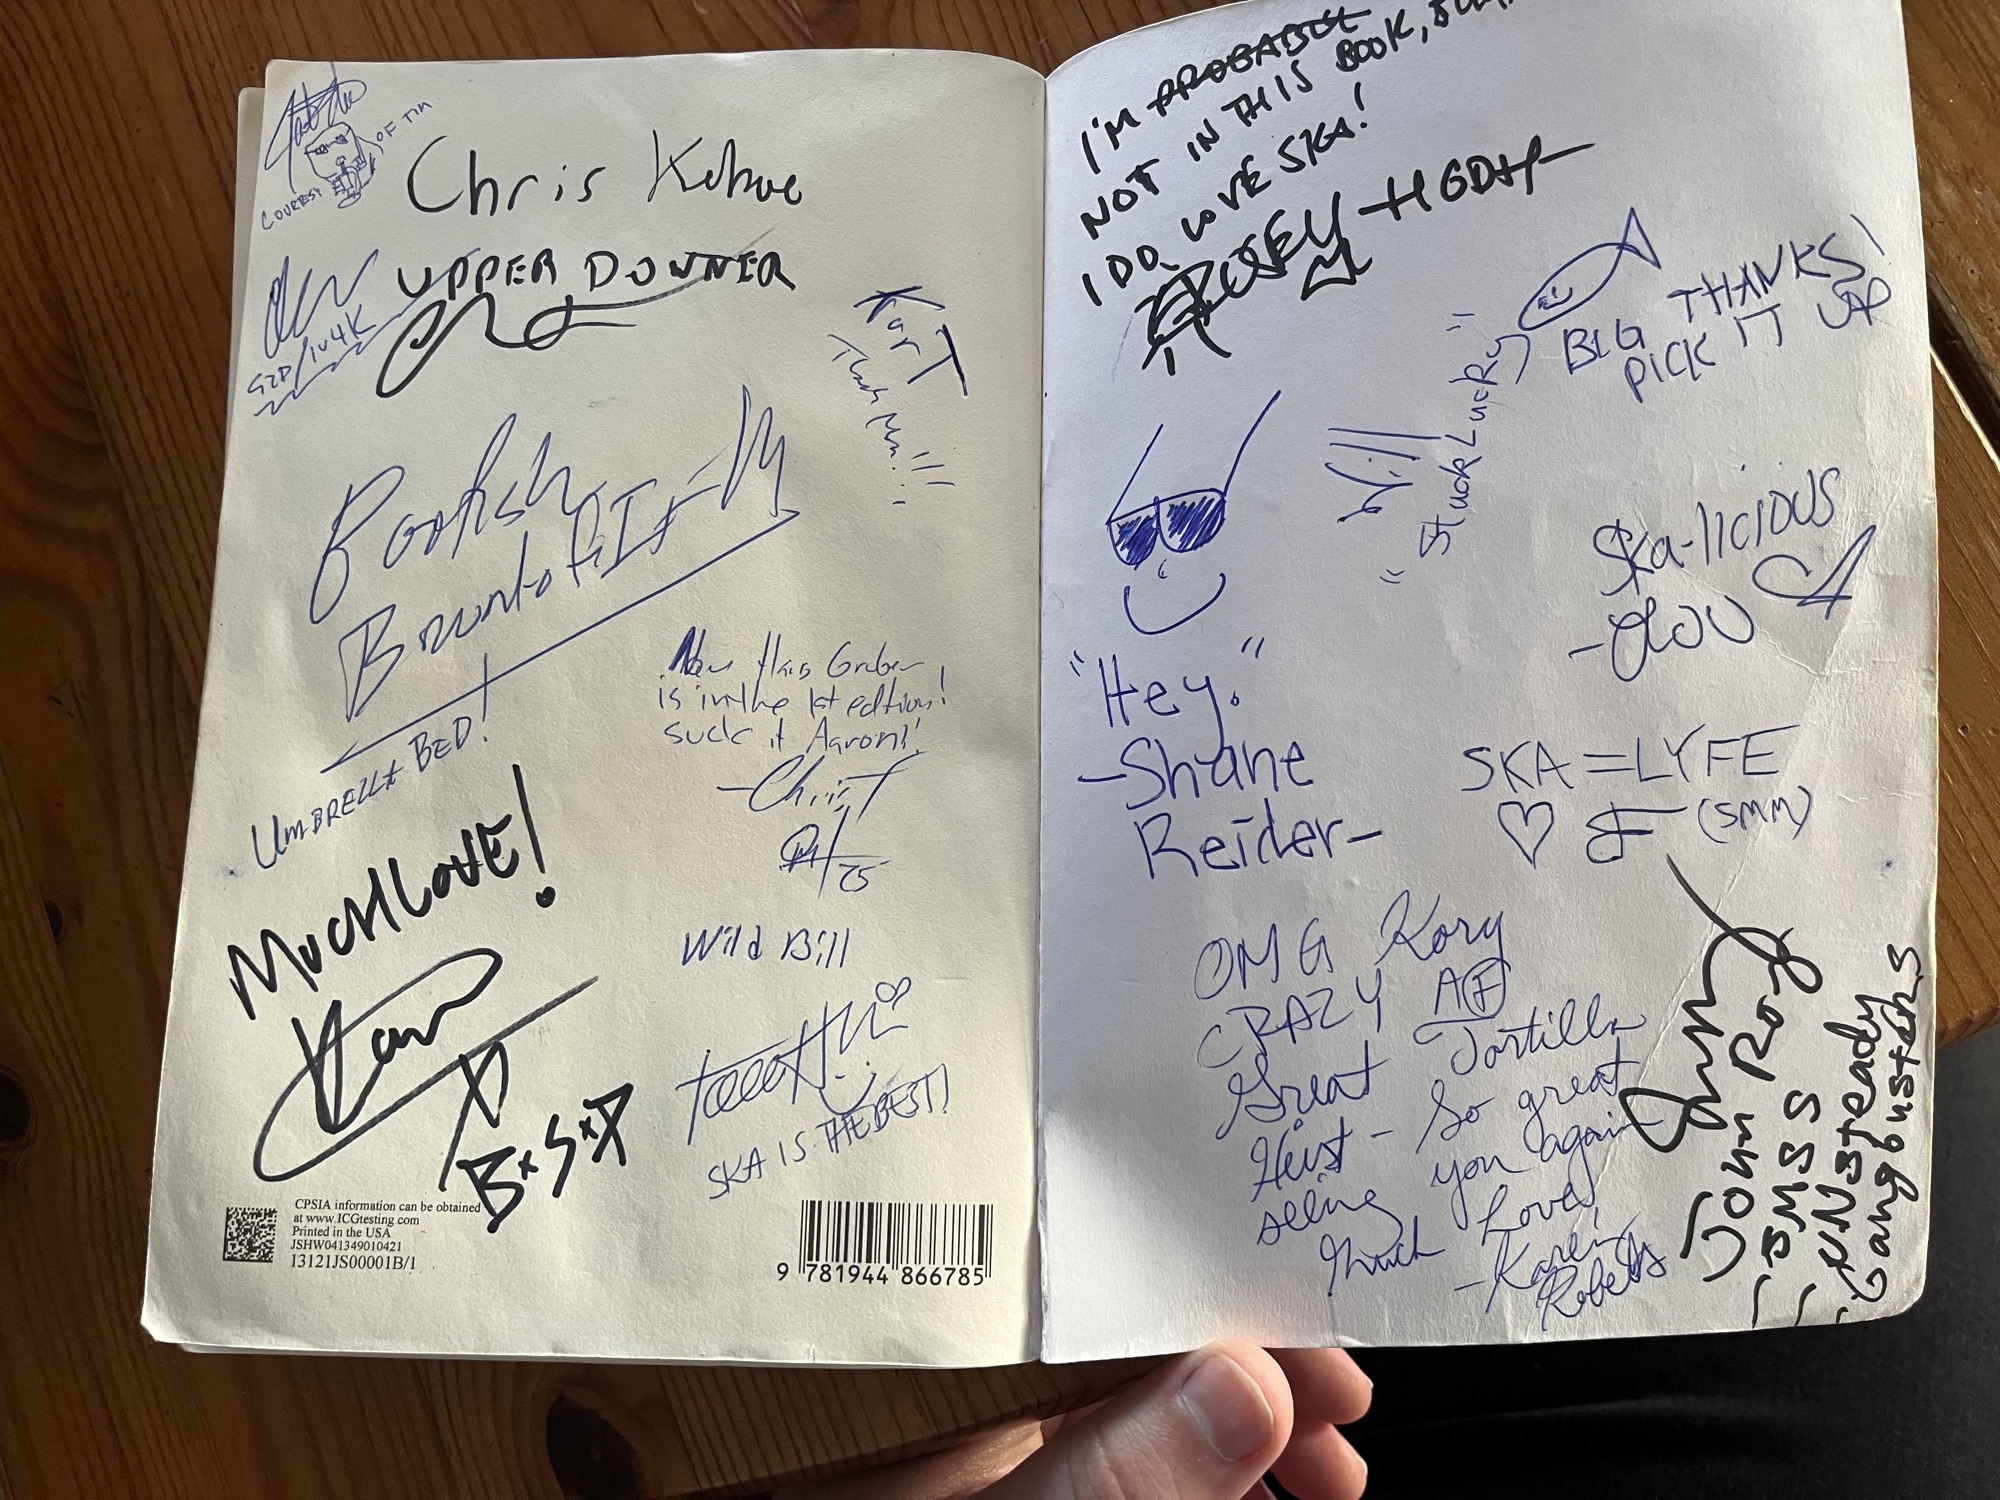 OF TIN
COURTESY
Chris Kehoe
UPPER DOWNER
G2D/1V4K
Kar T
UMBRELLA BED!
Now Hans Gruber
is in the 1st edition!
suck it Aaron!!
-Chris
25
MUCH LOVE!
B×S×P
Wild Bill
SKA IS THE BEST!
CPSIA information can be obtained
at www.ICGtesting.com
Printed in the USA
JSHW041349010421
13121JS00001B/1
9 781944 866785
I'M PROBABLY
NOT IN THIS BOOK, BUT
I DO LOVE SKA!
-HGDH-
BIG THANKS!
PICK IT UP
Will
"Stuck Lucky"
Ska-licious
"Hey."
-Shane
Reider-
SKA=LYFE
(SMM)
OMG Kory
CRAZY AF
Great Tortilla
Heist - So great
seeing you again
Much Love,
-Karen
Roberts
Jon Roy
BMSS
UNSteady
Gangbusters